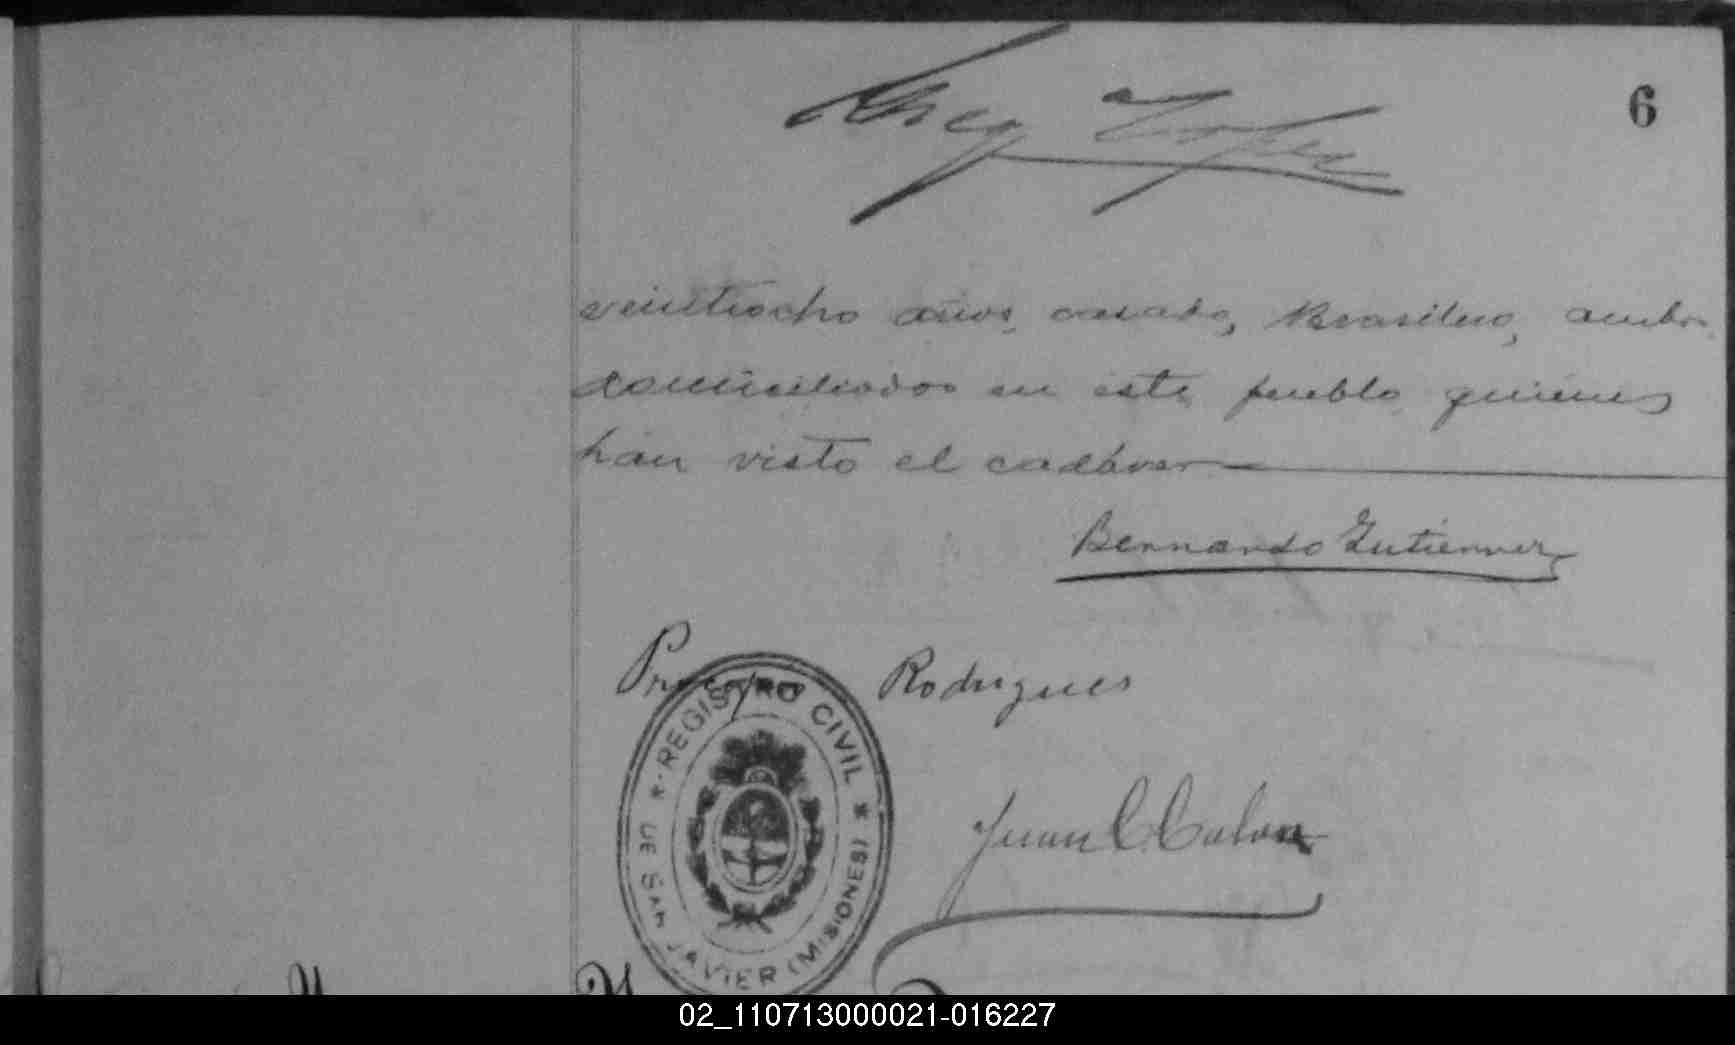 6
Lopez
veintiocho años, casado, Brasilero, ambos
domiciliados en este pueblo quienes
han visto el cadáver
Bernando Gutierrez
Rodrigues
Juan C.
* REGISTRO CIVIL *
DE SAN JAVIER (MISIONES)
02_110713000021-016227